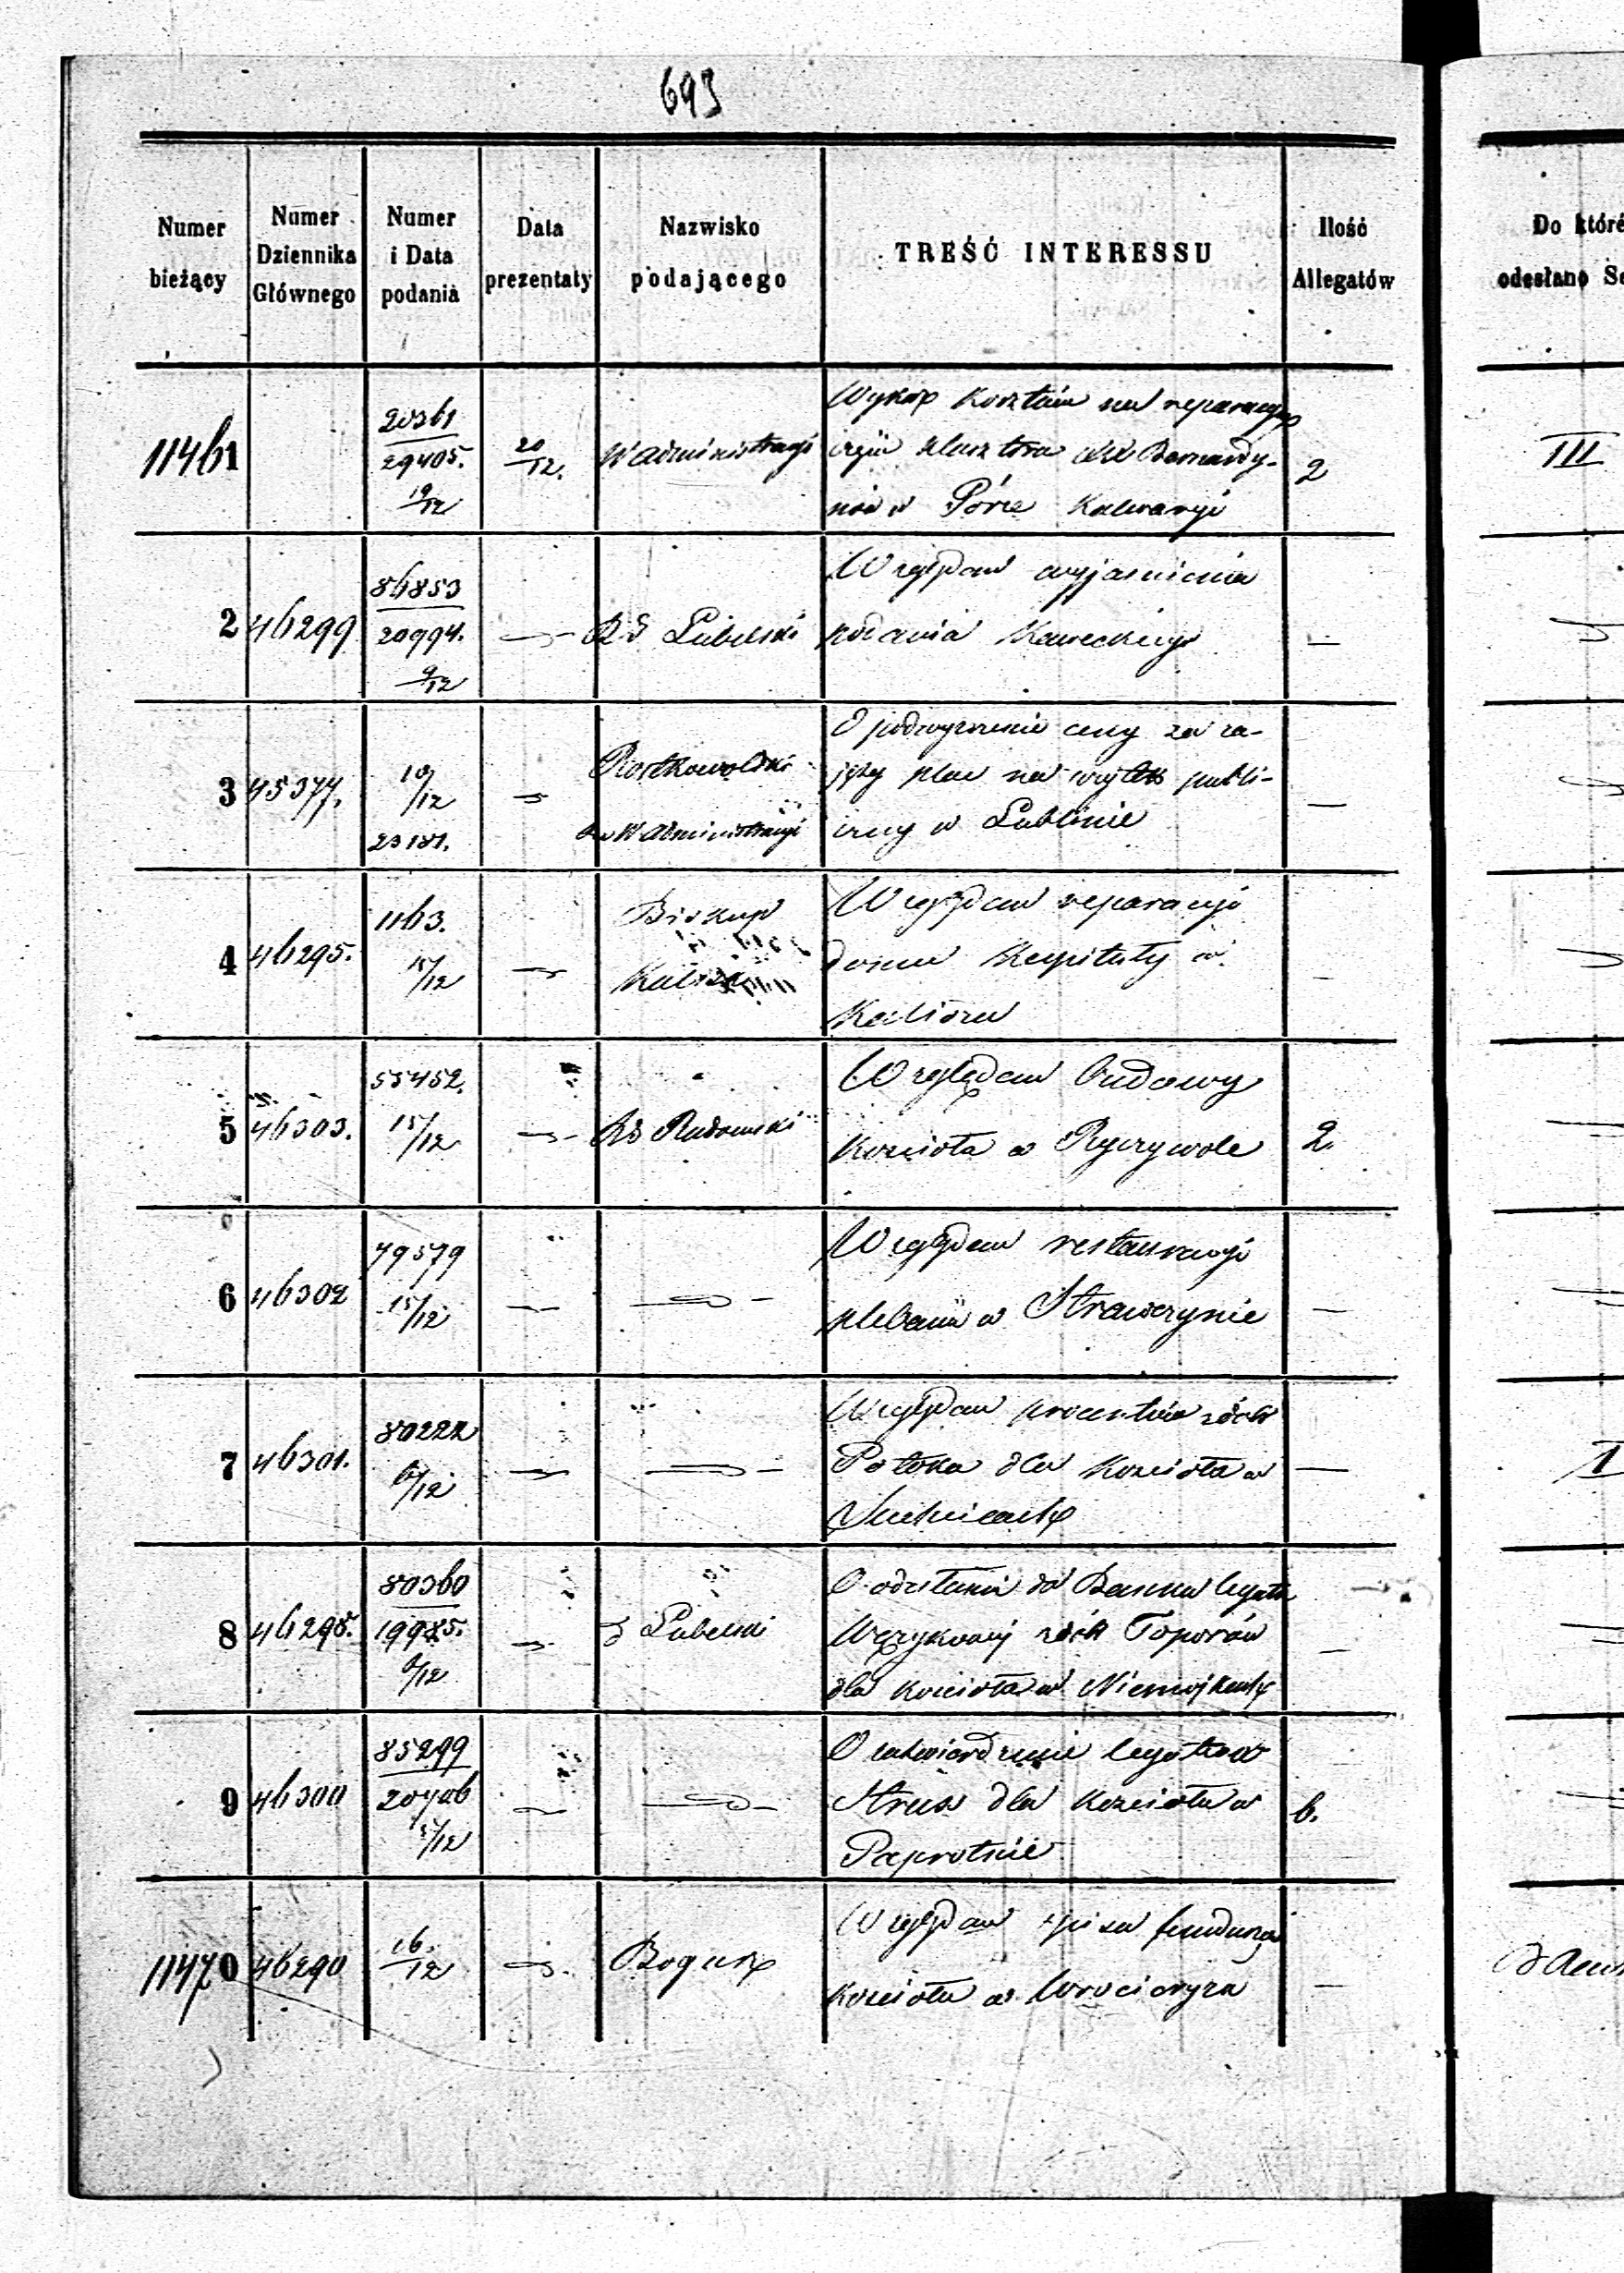 693
Numer bieżący
Numer Dziennika Głównego
Numer i Data podania
Data prezentaty
Nazwisko podającego
TREŚĆ INTERESSU
Ilość Allegatów
Do któré
odesłano Se
11461
20361
29405.
19/12
20/12.
W Administracyi
Wykaz kosztów na reparacyę
części klasztoru XX Bernardy-
nów w Górze Kalwaryi
2
III
2
46299
86853
20994.
9/12
RG Lubelski
Względem wyjaśnienia
podania Kaweckiego
—
3
45377.
10/12
23181.
W Administracyi
O podwyższenie ceny za za-
jęty plac na wyjazd publi-
czny w Lublinie
—
4
46295.
1163.
15/12
Biskup
Kaliski
Względem reparacyi
domu Kapituły w
Kaliszu
—
5
46303.
55452.
15/12
RG Radomski
Względem budowy
Kościoła w Ryczywole
2.
6
46302
79579
15/12
Względem restauracyi
plebanii w
—
7
46301.
80222
6/12
Względem procentów z dóbr
Potoka dla Kościoła w
—
I
8
46298.
80360
19985.
6/12
G Lubelski
O odesłanie do Banku legatu
z dóbr Toporów
dla Kościoła w Niemojkach
—
9
46300
85299
20706
5/12
O zatwierdzenie legatów
Strus dla Kościoła w
Paprotnie
6.
11470
46290
16/12
Bogusz
Względem spisu funduszu
Kościoła w Wrocieryżu
—